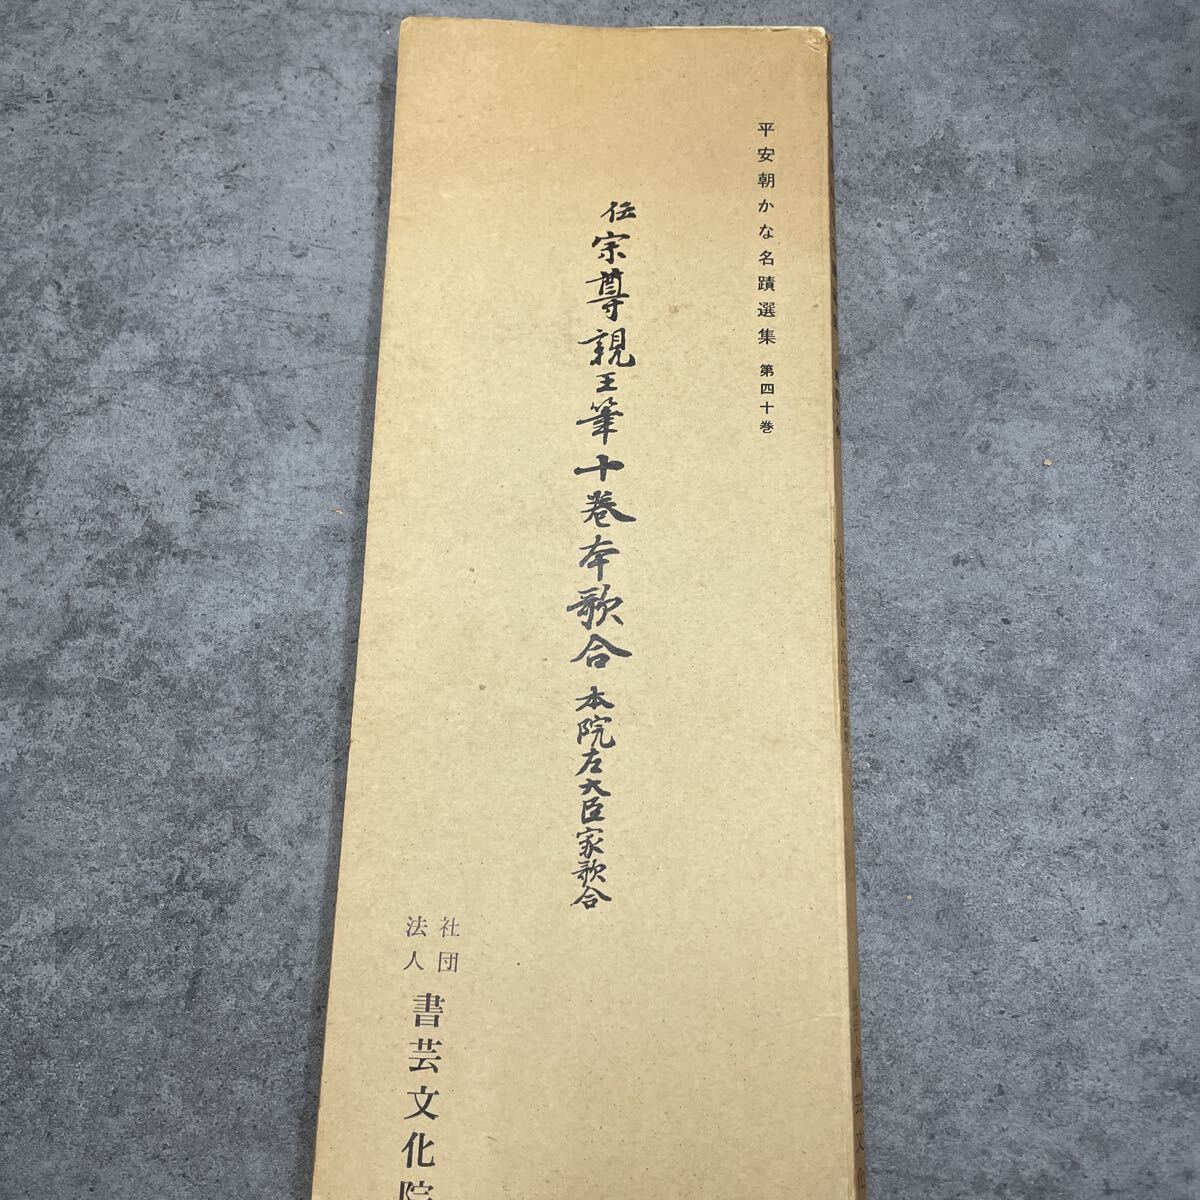 平安朝かな名蹟選集 第四十巻
伝宗尊親王筆十巻本歌合 本院左大臣家歌合
社団
法人
書芸文化院
書芸文化